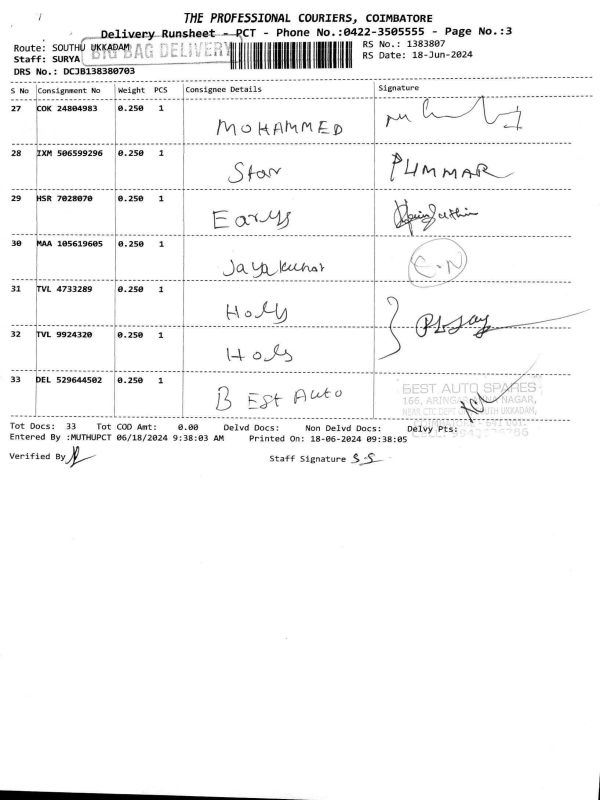 THE PROFESSIONAL COURIERS, COIMBATORE
Delivery Runsheet - PCT - Phone No.:0422-3505555 - Page No.:3
Route: SOUTHU UKKADAM
BIG BAG DELIVERY
RS No.: 1383807
Staff: SURYA
RS Date: 18-Jun-2024
DRS No.: DCJB138380703
S No Consignment No Weight PCS Consignee Details Signature
27 COK 24804983 0.250 1
MOHAMMED
28 IXM 506599296 0.250 1
Star
29 HSR 7028070 0.250 1
Earlys
30 MAA 105619605 0.250 1
Jayakumar
C.N
31 TVL 4733289 0.250 1
Holy
32 TVL 9924320 0.250 1
Holy
33 DEL 529644502 0.250 1
Best Auto
BEST AUTO SPARES
166, ARINGAR NAGAR,
NEAR CTC DEPT UKKADAM,
641 001.
Tot Docs: 33 Tot COD Amt: 0.00 Delvd Docs: Non Delvd Docs: Delvy Pts:
Entered By :MUTHUPCT 06/18/2024 9:38:03 AM Printed On: 18-06-2024 09:38:05
Verified By
Staff Signature S-S